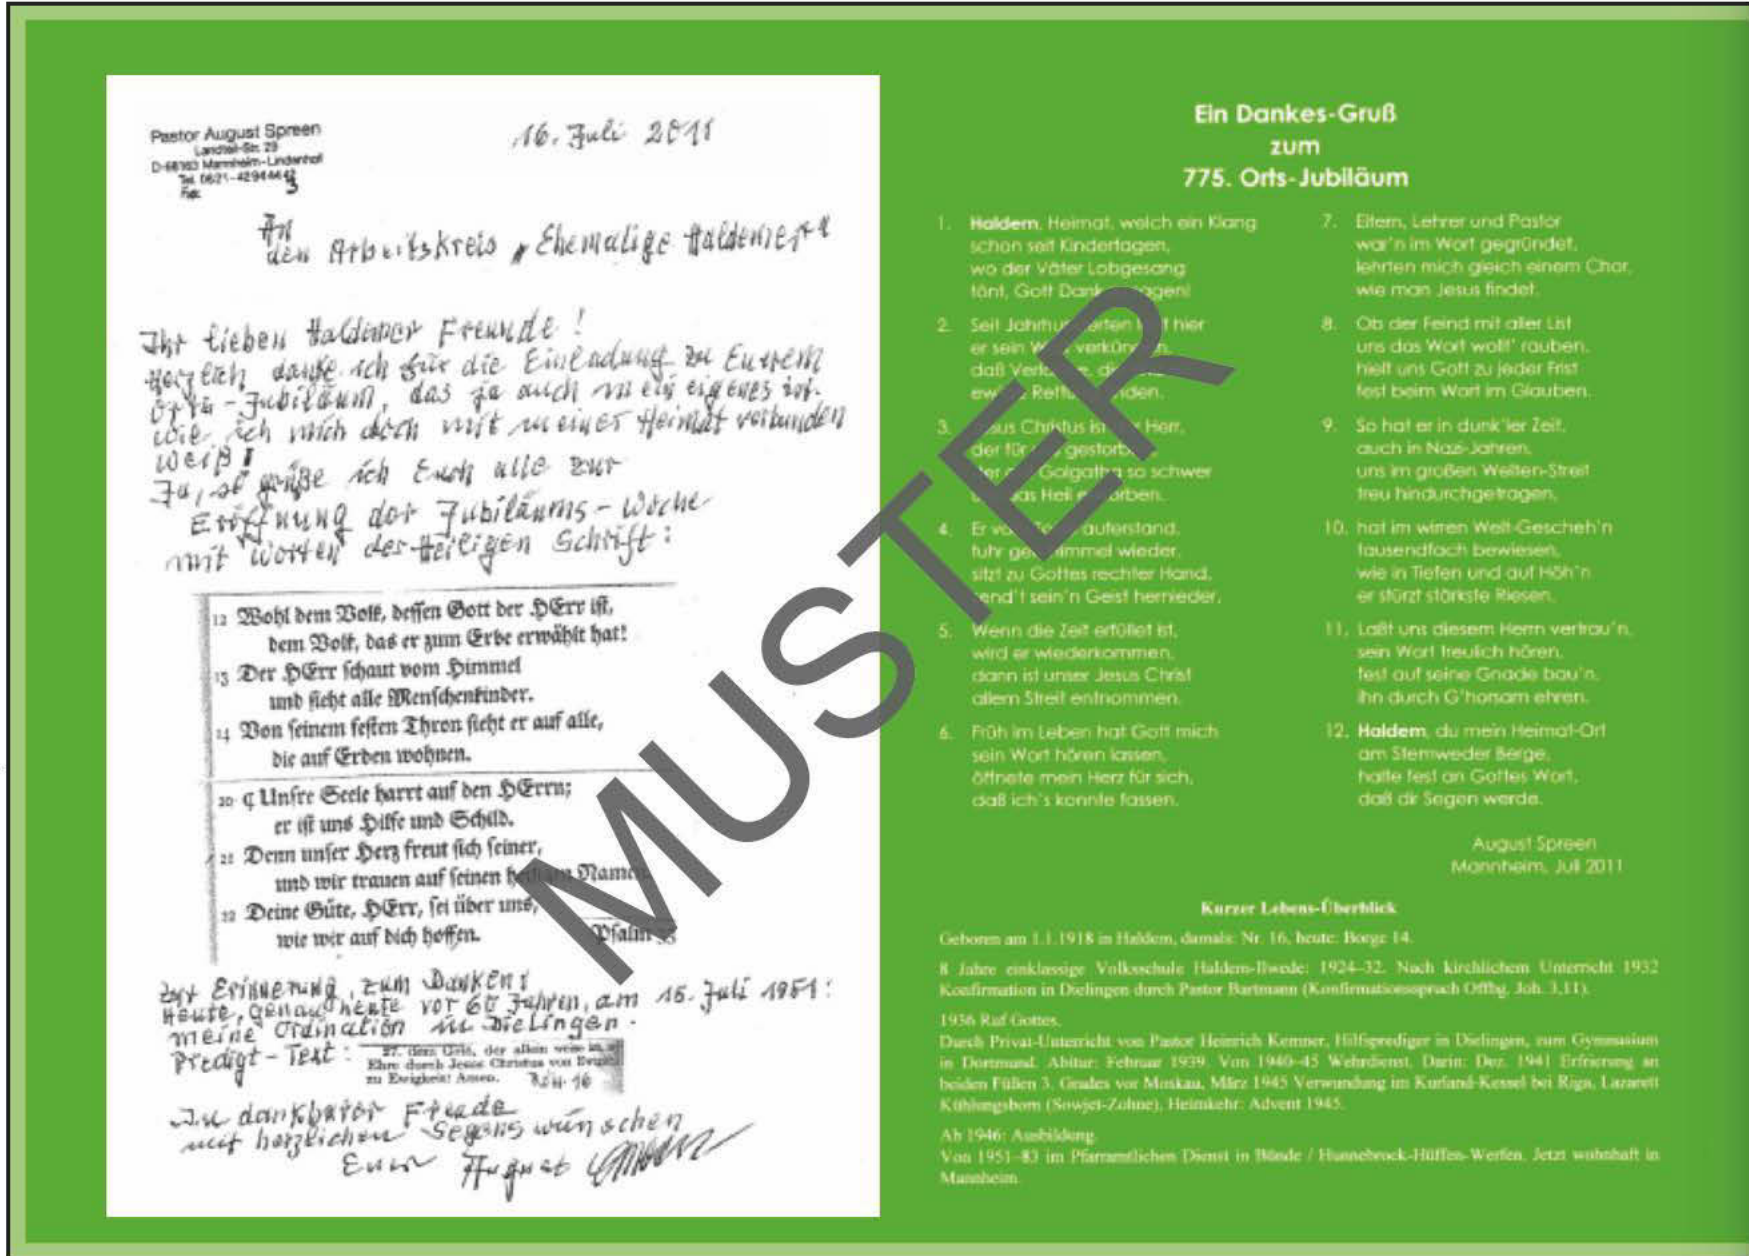 Pastor August Spreen
Landteil-Str. 29
D-68163 Mannheim-Lindenhof
Tel. 0621-4294443
Fax:
16. Juli 2011
An
den Arbeitskreis „Ehemalige Haldemer"
Ihr lieben Haldemer Freunde!
Herzlich danke ich für die Einladung zu Eurem
Orts-Jubiläum, das ja auch mein eigenes ist.
wie ich mich doch mit meiner Heimat verbunden
weiß!
Ja, so grüße ich Euch alle zur
Eröffnung der Jubiläums-Woche
mit Worten der Heiligen Schrift:
12 Wohl dem Volk, dessen Gott der HErr ist,
dem Volk, das er zum Erbe erwählt hat!
13 Der HErr schaut vom Himmel
und sieht alle Menschenkinder.
14 Von seinem festen Thron sieht er auf alle,
die auf Erden wohnen.
20 ¶ Unsre Seele harrt auf den HErrn;
er ist uns Hilfe und Schild.
21 Denn unser Herz freut sich seiner,
und wir trauen auf seinen heiligen Namen.
22 Deine Güte, HErr, sei über uns,
wie wir auf dich hoffen.
Psalm 33
Zur Erinnerung, zum Danken!
Heute, genau heute vor 60 Jahren, am 15. Juli 1951:
meine Ordination in Dielingen.
Predigt-Text:
27. dem Gott, der allein weise ist, sei
Ehre durch Jesus Christus von Ewigkeit
zu Ewigkeit! Amen.
Röm. 16
In dankbarer Freude
mit herzlichen Segenswünschen
Euer August Spreen
Ein Dankes-Gruß
zum
775. Orts-Jubiläum
1. Haldem, Heimat, welch ein Klang
schon seit Kindertagen,
wo der Väter Lobgesang
tönt, Gott Dank sagen!
2. Seit Jahrhunderten hier
er sein Wort verkünden,
daß
ew Rettung finden.
3. Jesus Christus ist Herr,
der für gestorben,
der Golgatha so schwer
das Heil erworben.
4. Er vom Tod auferstand,
fuhr gen Himmel wieder,
sitzt zu Gottes rechter Hand,
send't sein'n Geist hernieder.
5. Wenn die Zeit erfüllet ist,
wird er wiederkommen,
dann ist unser Jesus Christ
allem Streit entnommen.
6. Früh im Leben hat Gott mich
sein Wort hören lassen,
öffnete mein Herz für sich,
daß ich's konnte fassen.
7. Eltern, Lehrer und Pastor
war'n im Wort gegründet,
lehrten mich gleich einem Chor,
wie man Jesus findet.
8. Ob der Feind mit aller List
uns das Wort wollt' rauben,
hielt uns Gott zu jeder Frist
fest beim Wort im Glauben.
9. So hat er in dunk'ler Zeit,
auch in Nazi-Jahren,
uns im großen Welten-Streit
treu hindurchgetragen,
10. hat im wirren Welt-Gescheh'n
tausendfach bewiesen,
wie in Tiefen und auf Höh'n
er stürzt stärkste Riesen.
11. Laßt uns diesem Herrn vertrau'n,
sein Wort treulich hören,
fest auf seine Gnade bau'n,
ihn durch G'horsam ehren.
12. Haldem, du mein Heimat-Ort
am Stemweder Berge,
halte fest an Gottes Wort,
daß dir Segen werde.
August Spreen
Mannheim, Juli 2011
Kurzer Lebens-Überblick
Geboren am 1.1.1918 in Haldem, damals: Nr. 16, heute: Borge 14.
8 Jahre einklassige Volksschule Haldem-Ilwede: 1924–32. Nach kirchlichem Unterricht 1932
Konfirmation in Dielingen durch Pastor Bartmann (Konfirmationsspruch Offbg. Joh. 3,11).
1936 Ruf Gottes.
Durch Privat-Unterricht von Pastor Heinrich Kemner, Hilfsprediger in Dielingen, zum Gymnasium
in Dortmund. Abitur: Februar 1939. Von 1940–45 Wehrdienst. Darin: Dez. 1941 Erfrierung an
beiden Füßen 3. Grades vor Moskau, März 1945 Verwundung im Kurland-Kessel bei Riga, Lazarett
Kühlungsborn (Sowjet-Zohne), Heimkehr: Advent 1945.
Ab 1946: Ausbildung.
Von 1951–83 im Pfarramtlichen Dienst in Bünde / Hunnebrock-Hüffen-Werfen. Jetzt wohnhaft in
Mannheim.
MUSTER